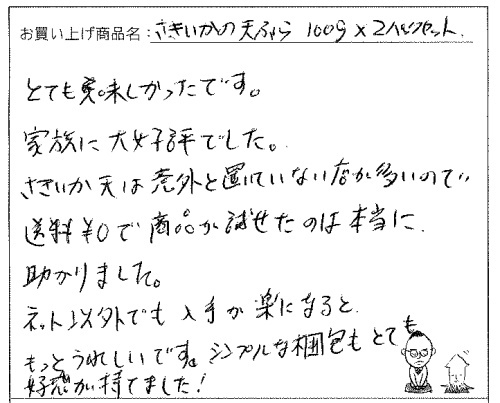 お買い上げ商品名：さきいかの天ぷら 100g×2パックセット.
とても美味しかったです。
家族に大好評でした。
さきいか天は意外と置いていない店が多いので
送料¥0で商品が試せたのは本当に
助かりました。
ネット以外でも入手が楽になると
もっとうれしいです。シンプルな梱包もとても
好感が持てました！